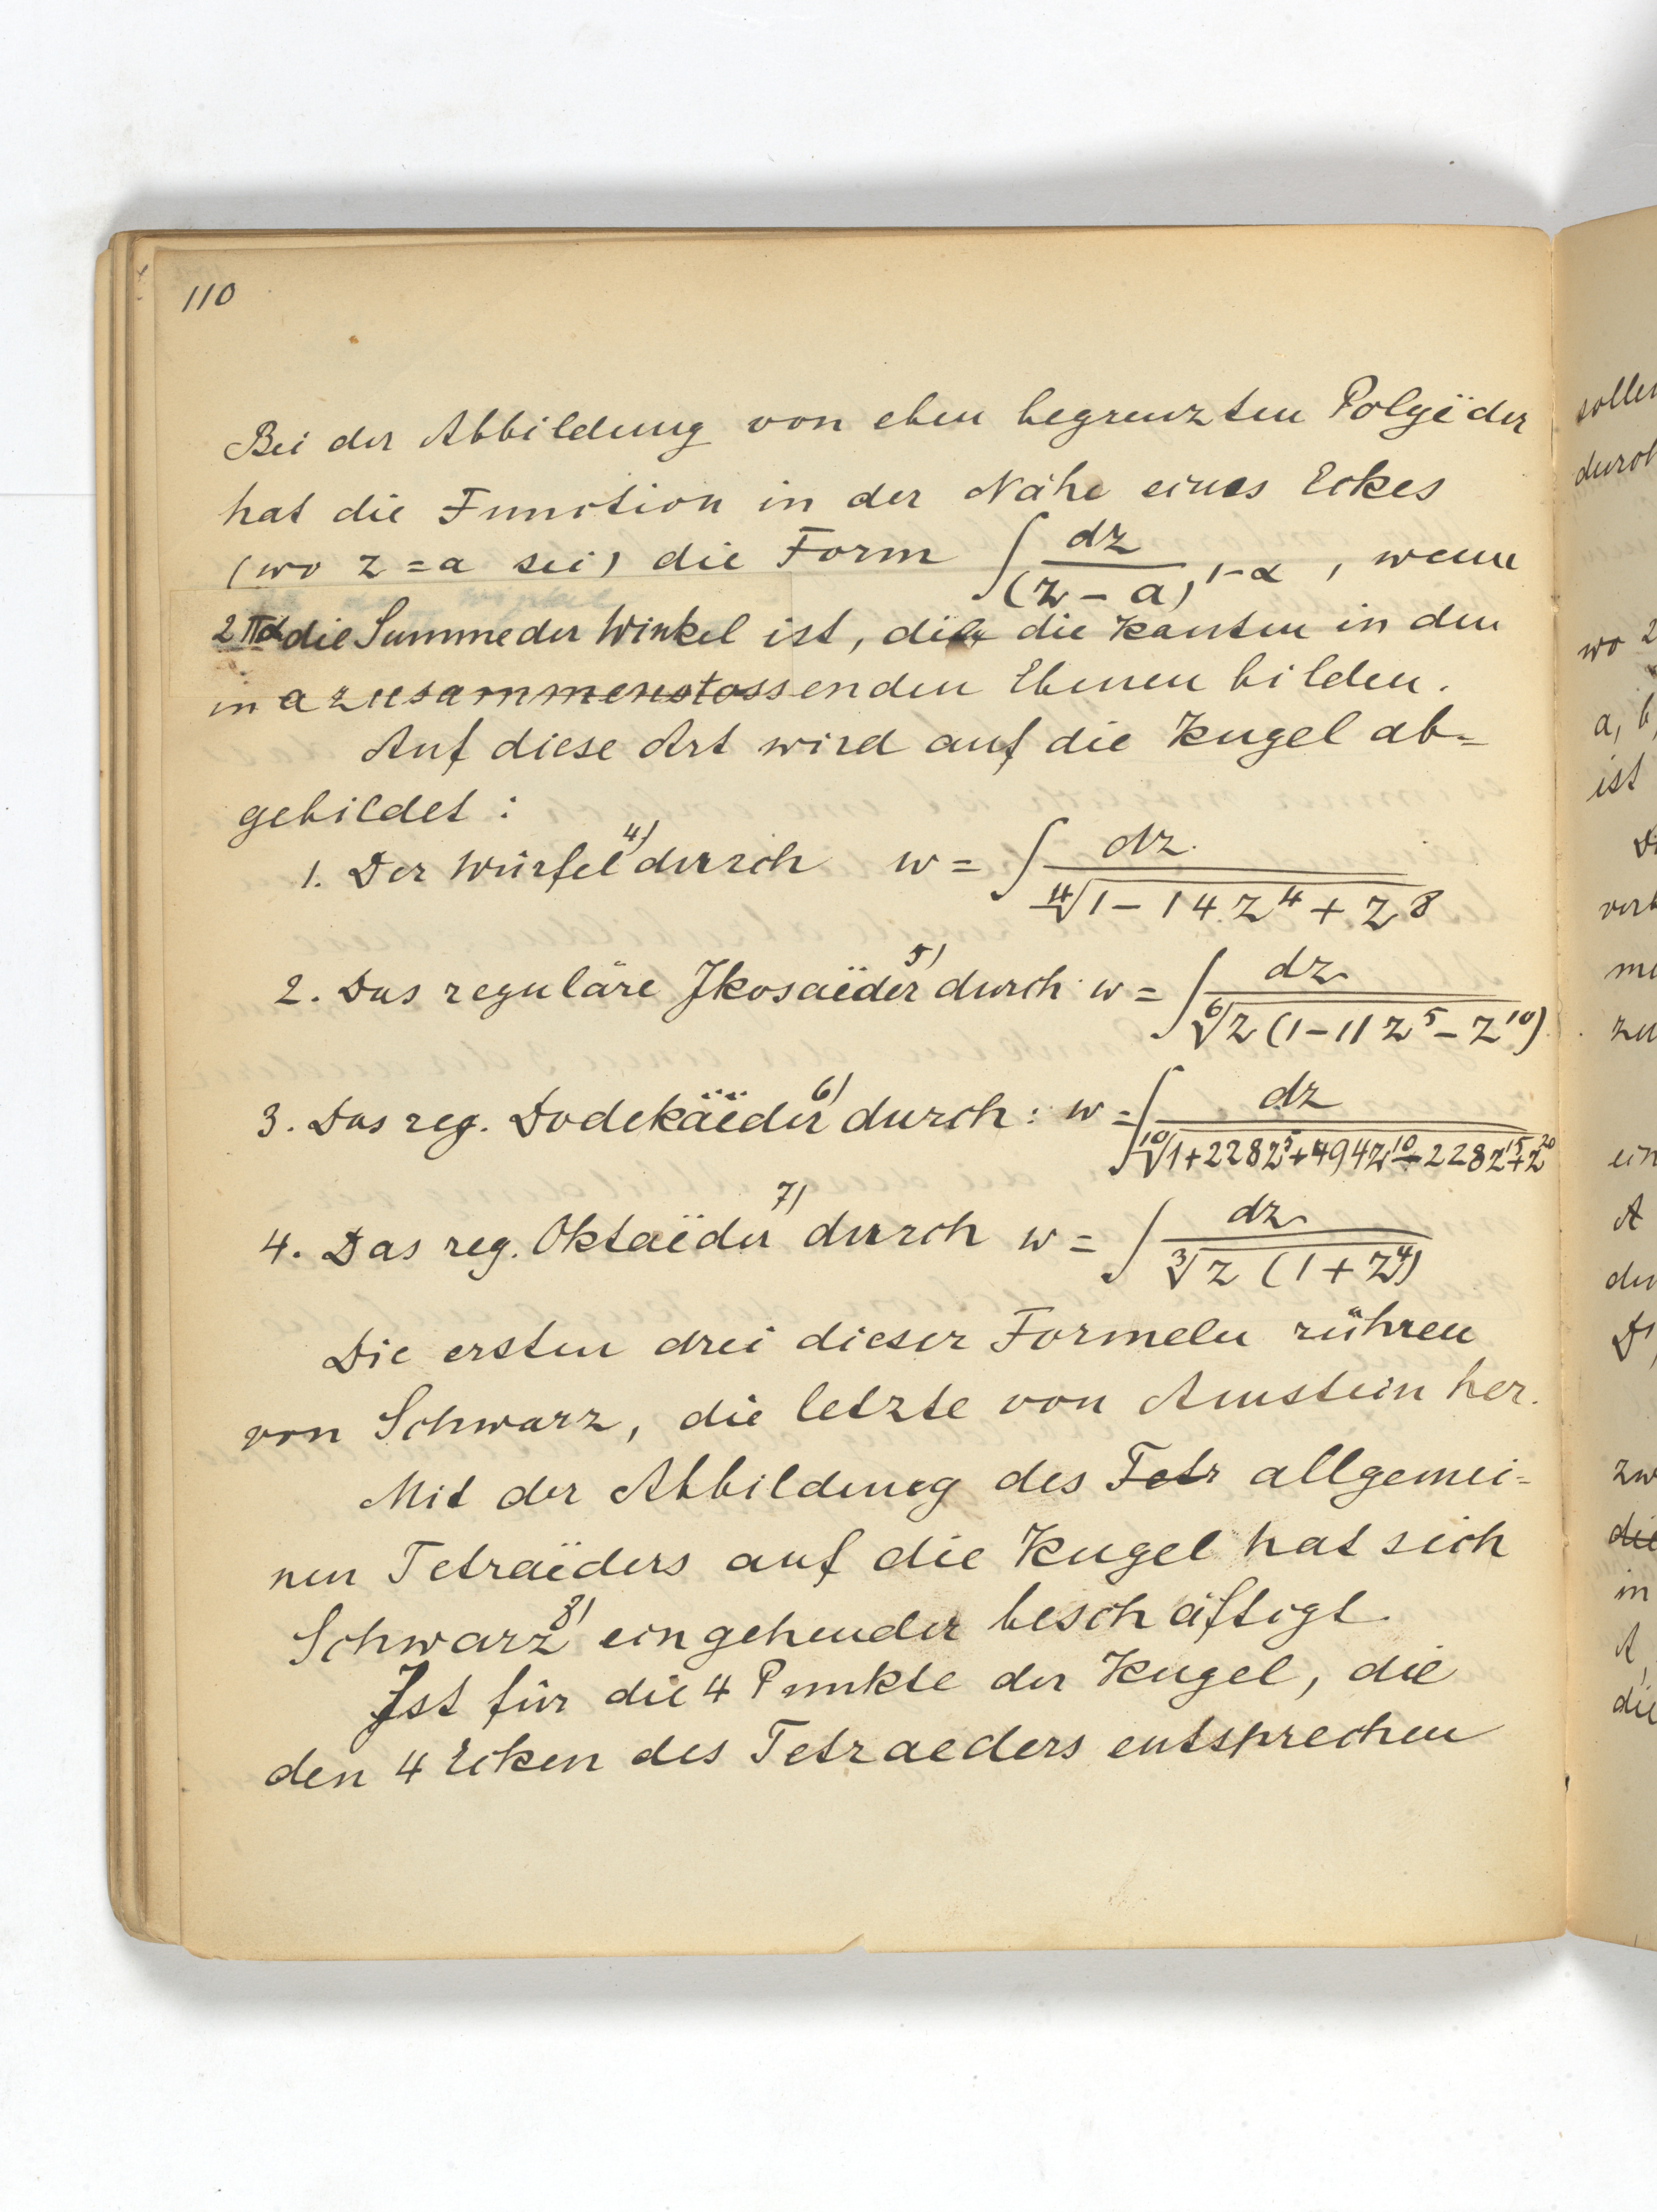 110
Bei der Abbildung von eben begrenzten Polyëder
hat die Function in der Nähe eines Eckes
(wo z = a sei) die Form ∫ dz / (z – a)^1–α , wenn
2πα die Summe der Winkel ist, die die Kanten in den
in a zusammenstossenden Ebenen bilden.
Auf diese Art wird auf die Kugel ab=
gebildet :
1. Der Würfel 4) durch w = ∫ dz / ∜(1 – 14 z^4 + z^8)
2. Das reguläre Jkosaëder 5) durch w = ∫ dz / ⁶√(z (1 – 11 z^5 – z^10))
3. Das reg. Dodekäëder 6) durch : w = ∫ dz / ¹⁰√(1 + 228z^5 + 494z^10 – 228z^15 + z^20)
4. Das reg. Oktaëder 7) durch w = ∫ dz / ∛(z (1 + z^4))
Die ersten drei dieser Formeln rühren
von Schwarz, die letzte von Amstein her.
Mit der Abbildung des Tetr allgemei=
nen Tetraëders auf die Kugel hat sich
Schwarz 8) eingehender beschäftigt.
Jst für die 4 Punkte der Kugel, die
den 4 Ecken des Tetraeders entsprechen
soller
durch
wo 2
a, b,
ist
verb
me
zu
ein
A
der
D',
zw
die
in
A,
die